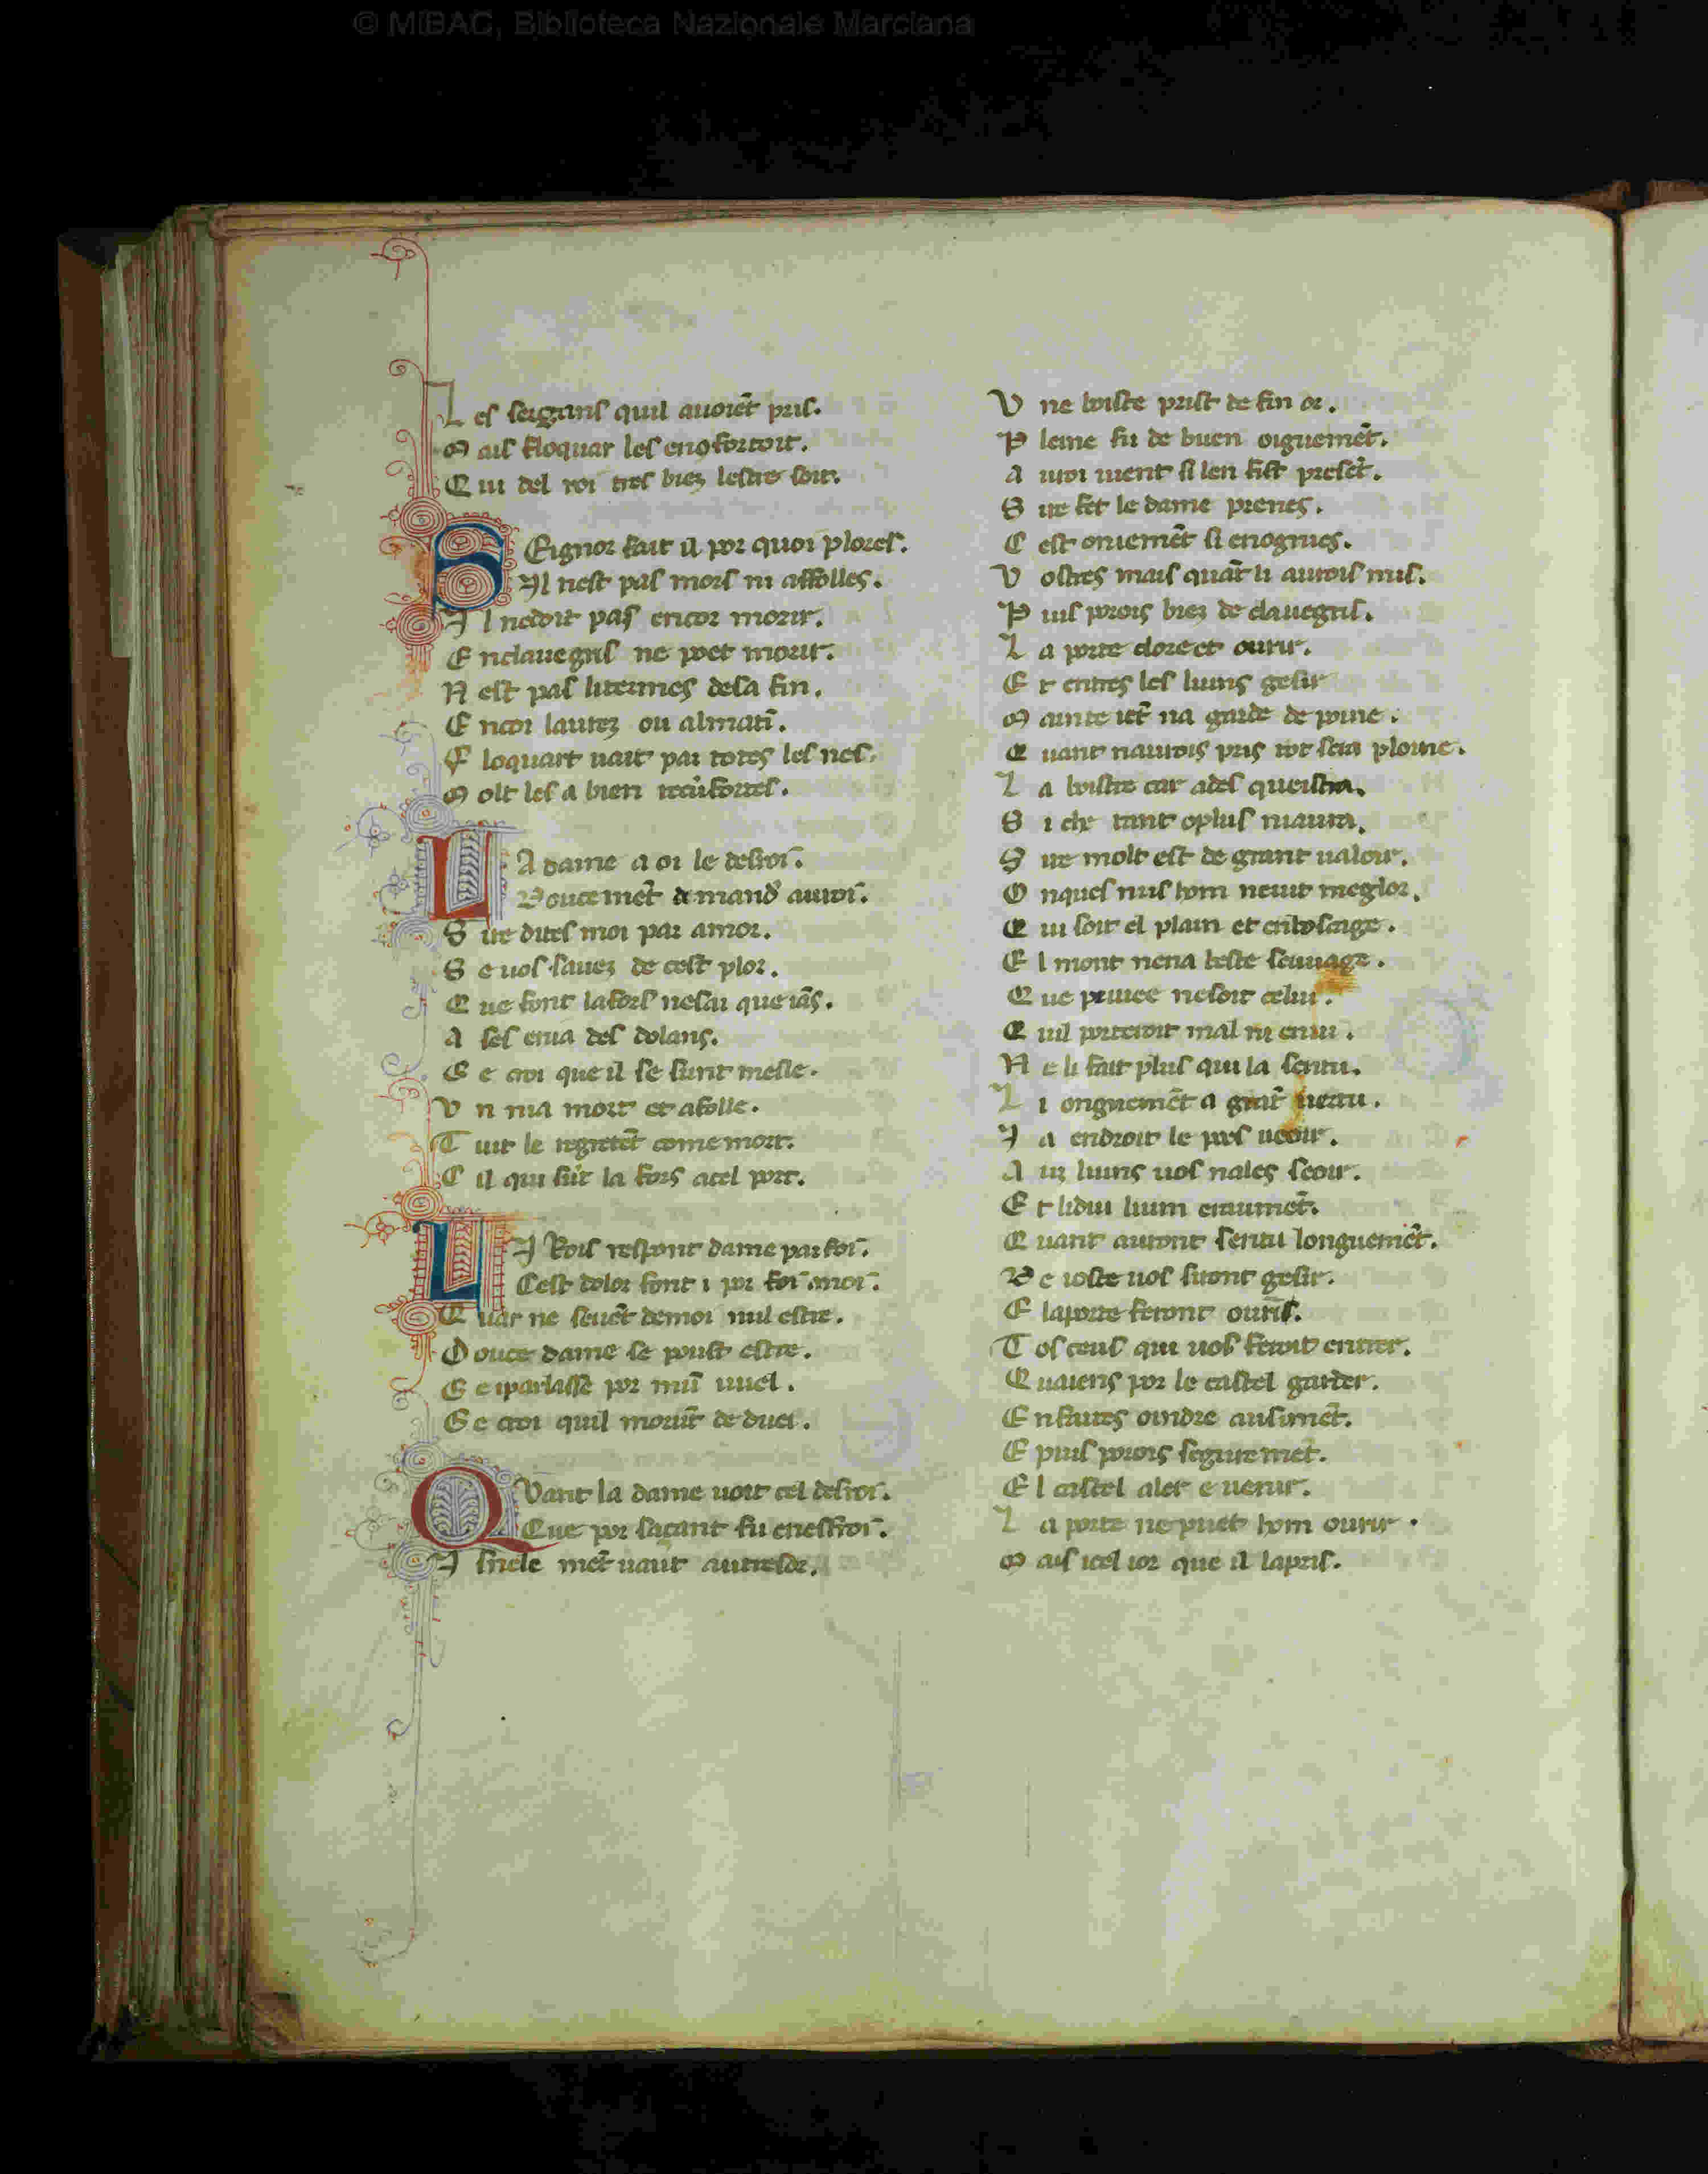 © MiBAC, Biblioteca Nazionale Marciana
L es sergans quil auoiēt pris.
M ais floquar les
Q ui del roi tres bien lestre soit.
SEignor fait il por quoi plores.
Il nest pas mors ni affolles.
I l nedoit pas encor morir.
E nclauegris ne poet morir.
N est pas litermes desa fin.
E ncor lautez ou almatī.
F loquart uait par totes les nes.
M olt les a bien
LA dame a oi le desroi.
Doucemēt demand' au roi.
S ire dites moi par amor.
S e uos sauez de cest plor.
Q ue font lafors nesai que iās.
A ses enia des dolans.
G e croi que il se sunt mesle.
V n nia mort et afolle.
T uit le regretēt come mort.
C il qui sūt la fors acel port.
LI Rois respont dame par foi.
Cest dolor font i por foi moi.
Q uar ne seuēt demoi nul estre.
D ouce dame se poust estre.
G e iparlasse por mū uuel.
G e croi quil moriīt de duel.
QVant la dame uoit cel desroi.
Que por saçant fu enesfroi.
I snele mēt uait
V ne boiste prist de fin or.
P leine fu de buen oignemēt.
A u roi uient si len fist presēt.
S ire fet le dame prenes.
C est oniemēt si enogines.
V ostres mais quāt li aurois mis.
P uis porois bien de clauegris.
L a porte clore et ourir.
E t entres les luins gesir
M ainte iet na garde de poine.
Q uant naurois pris tot sera ploine.
L a boistre car ades queistra.
S i che tant oplus niaura.
S ire molt est de grant ualour.
O nques nus hom neuit meglor.
Q ui soit el plain et enboscage.
E l mont nena beste seuuage.
Q ue peuice nesoit celui.
Q uil porteroit mal ni enui.
N e li fait plus qui la sentu.
L i onguemēt a grāt uertu.
I a endroit le poes ueoir.
A us luins uos nales seoir.
E t lidui luim eraumēt.
Q uant auront sentu longuemēt.
D e ioste uos siront gesir.
E laporte feront ourir.
T os ceus qui uos feroit entrer.
Q uaiens por le castel garder.
E nfaites oindre ausimēt.
E puis porois segure mēt.
E l castel aler e uenir.
L a porte ne puet hom ourir.
M ais icel ior que il lapris.